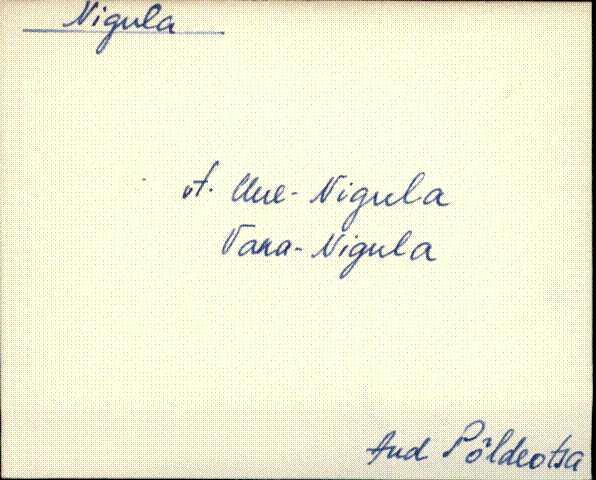 Nigula
vt. Uue-Nigula
Vana-Nigula
Aud Põldeotsa